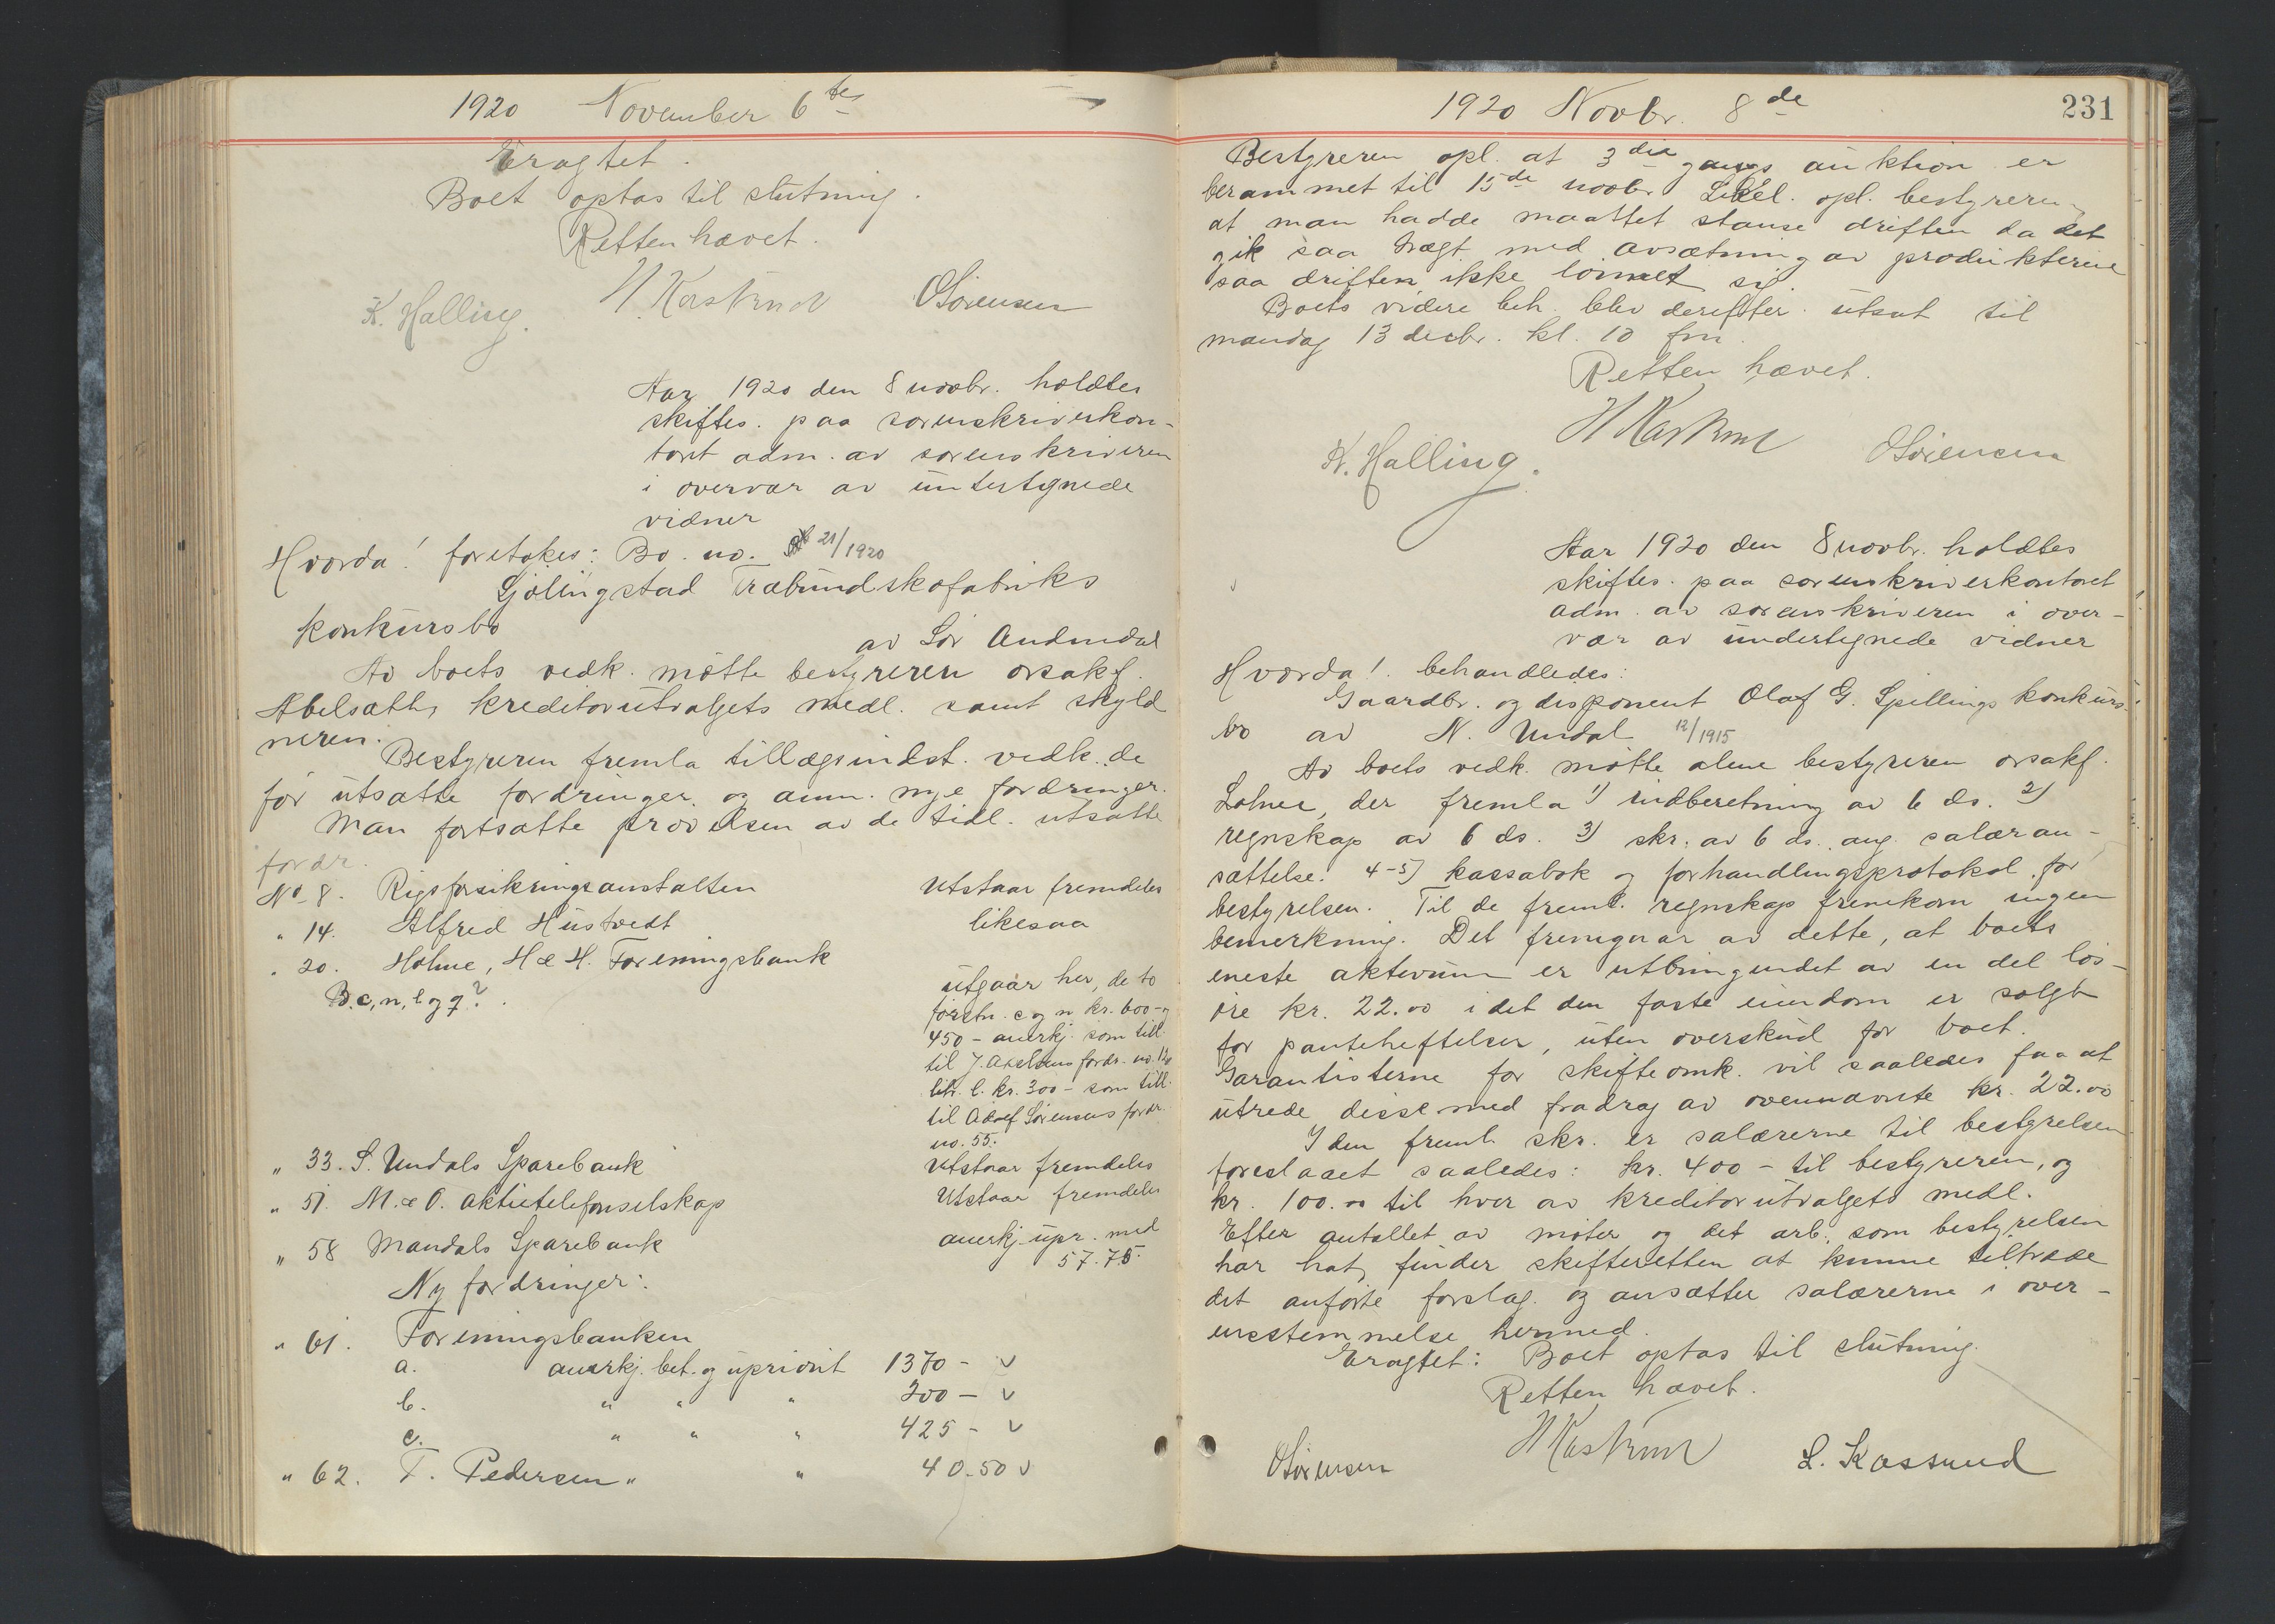 1920 November 6te
Eragtet.
Boet optas til slutning.
Retten hævet.
K. Halling. H. Kastrud OSörensen
Aar 1920 den 8 novbr. holdtes
skiftes. paa sorenskriverkon-
toret adm. av sorenskriveren
i overvær av undertegnede
vidner
Hvorda! foretokes: Bo. no. 21/1920
Gjølingstad Træbundskofabriks
konkursbo
av Sör Audnedal
Av boets vedk. mötte bestyreren orsakf.
Abelsæth, kreditorutvalgets medl. samt skyld
neren.
Bestyreren fremla tillægsindst. vedk. de
för utsatte fordringer og anm. nye fordringer.
Man fortsatte prövelsen av de tidl. utsatte
fordr.
No 8. Rigsforsikringsanstalten Utstaar fremdeles
" 14. Alfred Hustvedt likesaa
" 20. Holme, H & H. Foreningsbank
B. c, n, l og q? utgaar her, de to
förstn. c og n kr. 600 - og
450 - anerkj. som till.
til J. Axelsens fordr. no.
litr. l. kr. 300 - som till.
til Adolf Sörensens fordr.
no. 55.
" 33. S. Undals Sparebank Utstaar fremdeles
" 51. M. & O. aktietelefonselskap Utstaar fremdeles
" 58 Mandals Sparebank anerkj. upr. med
57.75.
Ny fordringer:
" 61. Foreningsbanken
a. anerkj. bet. og upriorit 1370 - v
b. " " " 200 - v
c. " " " 425 - v
" 62. T. Pedersen " " 40.50 v
1920 Novbr. 8de
231
Bestyreren opl. at 3die gangs auktion er
berammet til 15de novbr. Likel. opl. bestyreren
at man hadde maattet stanse driften da det
gik saa trægt med avsætning av produkterne
saa driften ikke lönnet sig.
Boets videre beh. blev derefter utsat til
mandag 13 decbr. kl. 10 fm.
Retten hævet.
K. Halling. H Kastrud OSörensen
Aar 1920 den 8 novbr. holdtes
skiftes. paa sorenskriverkontoret
adm. av sorenskriveren i over-
vær av undertegnede vidner
Hvorda! behandledes:
Gaardbr. og disponent Olaf G. Spillings konkurs-
bo av N. Undal 12/1915
Av boets vedk. mötte alene bestyreren orsakf.
Lohne, der fremla 1) indberetning av 6 ds. 2)
regnskap av 6 ds. 3) skr. av 6 ds. ang. salæran-
sættelse. 4-5) kassabok og forhandlingsprotokol for
bestyrelsen. Til de freml. regnskap fremkom ingen
bemerkning. Det fremgaar av dette, at boets
eneste aktivum er utbringendet av en del lös-
öre kr. 22.00 idet den faste eiendom er solgt
for pantheftelser, uten overskud for boet.
Garantisterne for skifteomk. vil saaledes faa at
utrede disse med fradrag av ovennævnte kr. 22.00
I den freml. skr. er salærerne til bestyrelsen
foreslaaet saaledes: kr. 400 - til bestyreren, og
kr. 100.00 til hver av kreditorutvalgets medl.
Efter antallet av möter og det arb. som bestyrelsen
har hat, finder skifteretten at kunne tiltræde
det anförte forslag og ansætter salærerne i over-
ensstemmelse hermed.
Eragtet: Boet optas til slutning.
Retten hævet.
OSörensen H Kastrud L. Kassund